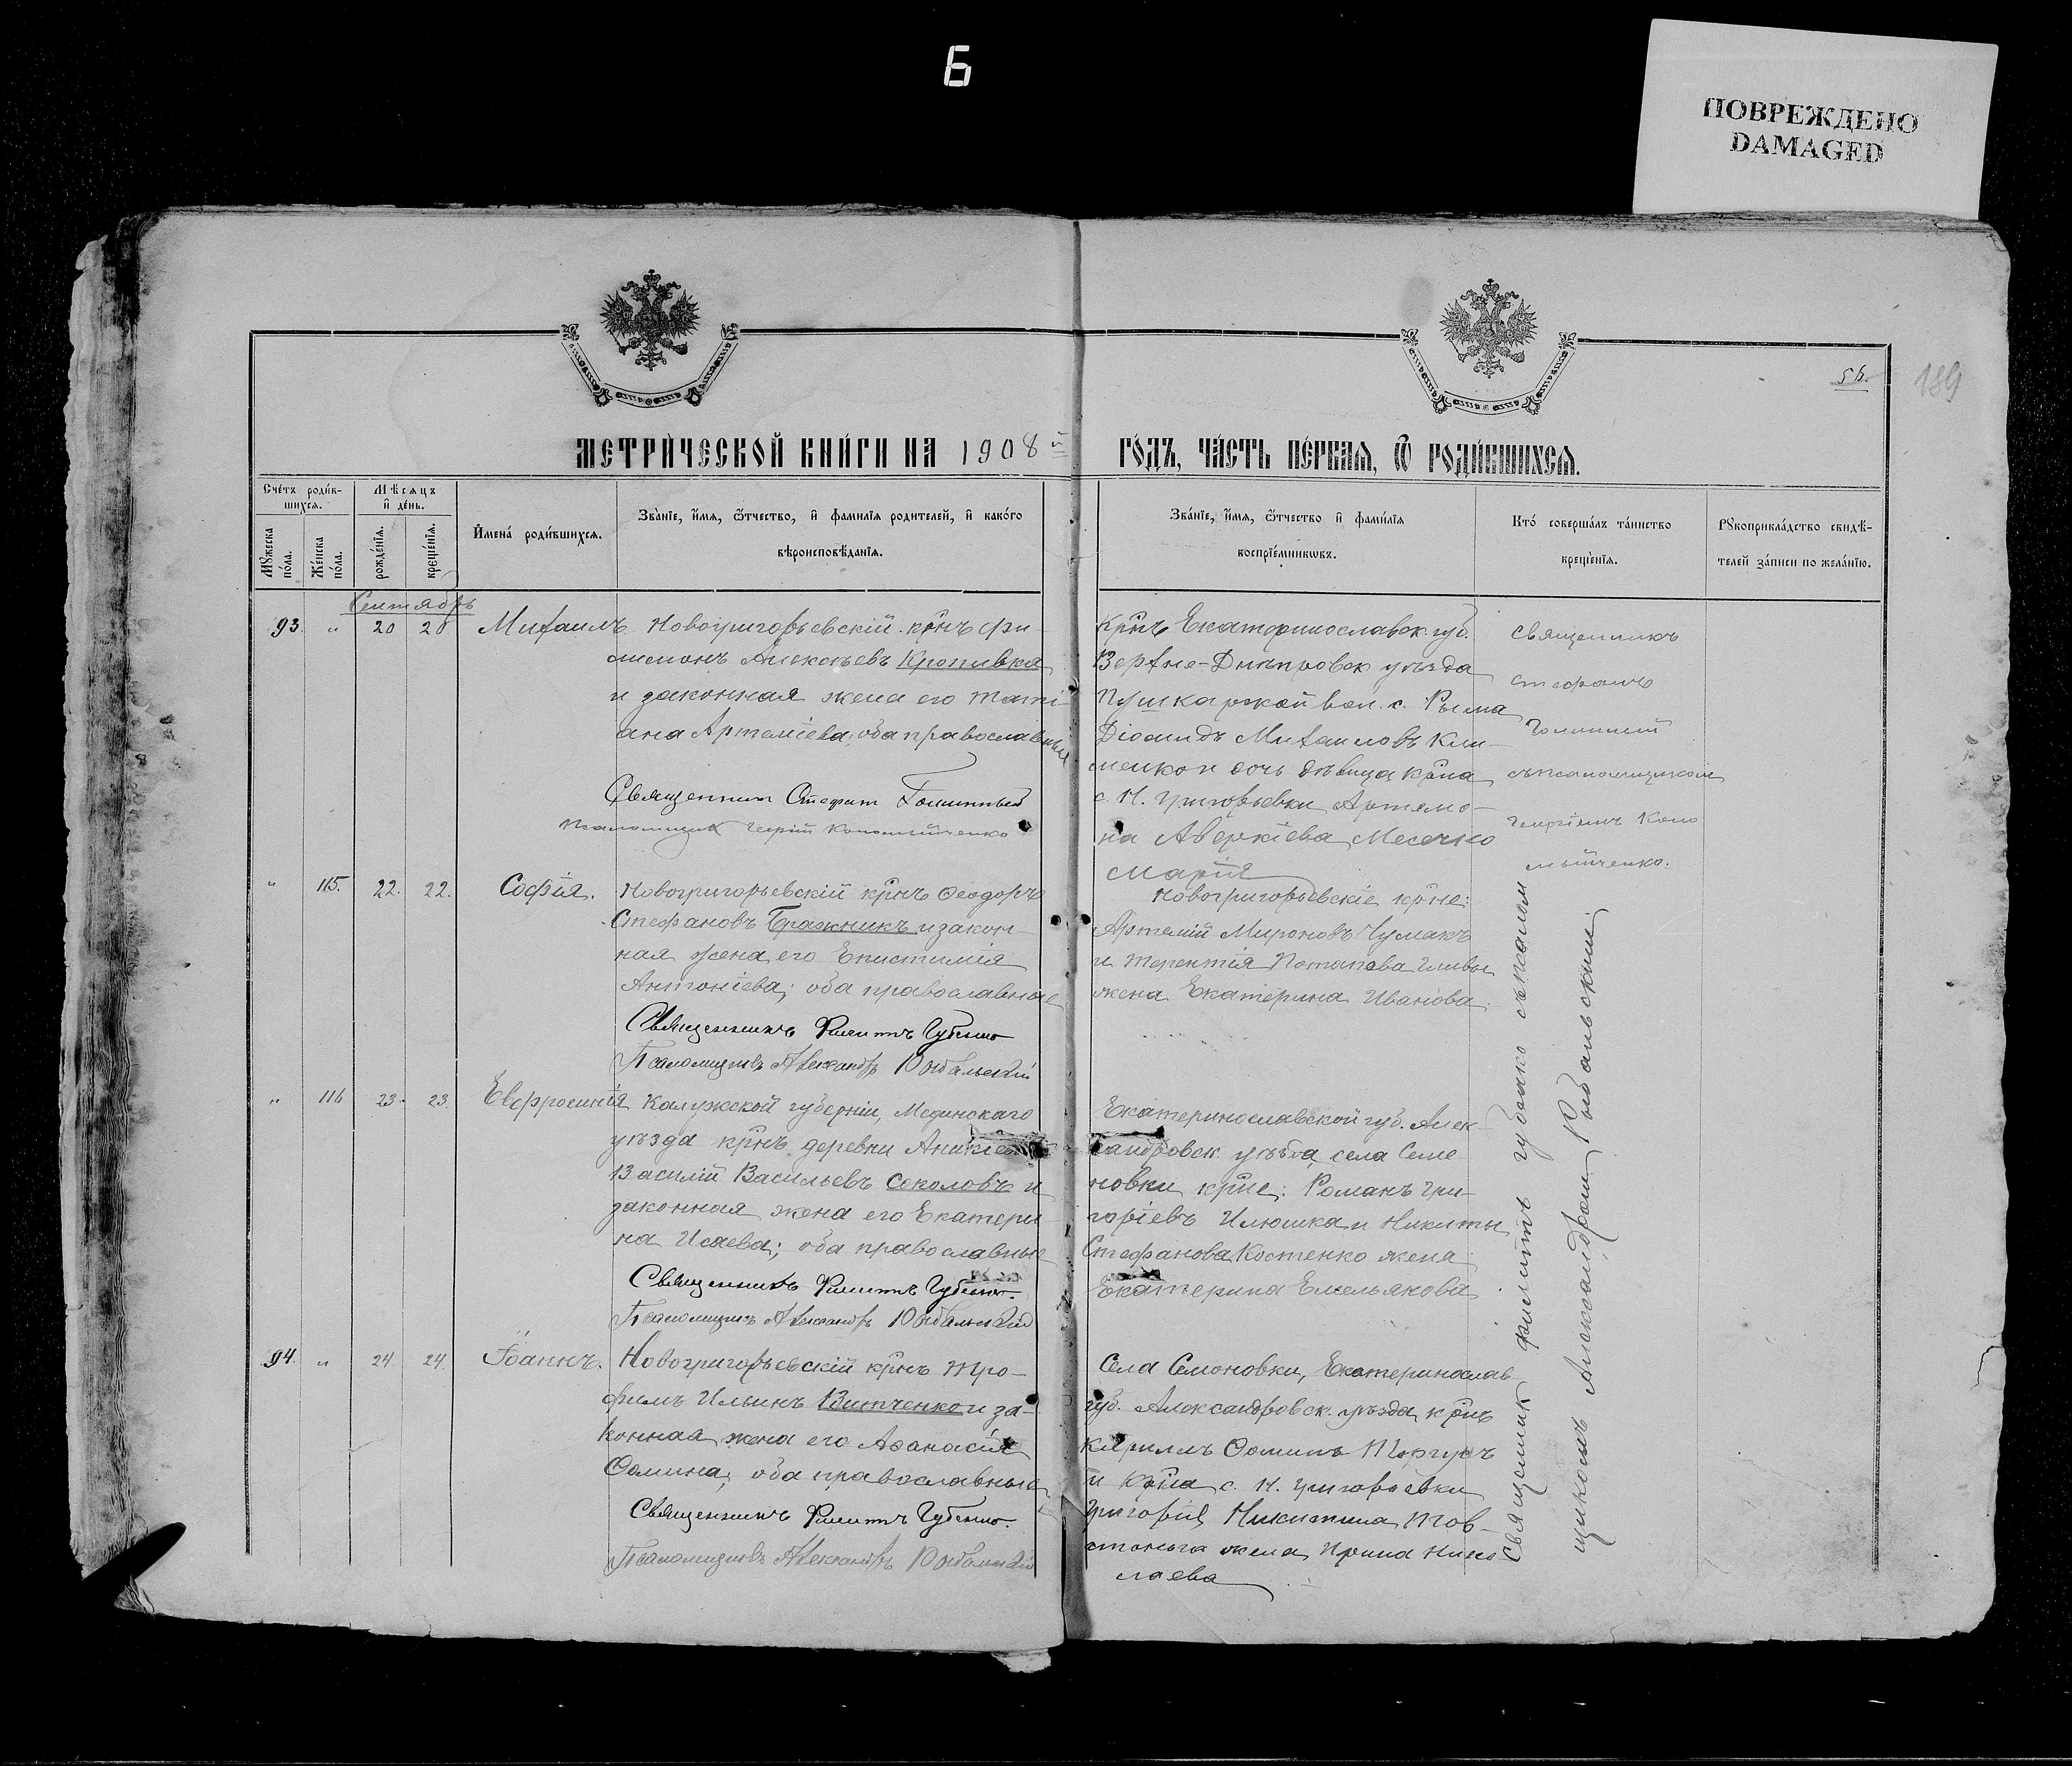 Б
ПОВРЕЖДЕНО
DAMAGED
56.
189
МЕТРИ́ЧЕСКОЙ КНИ́ГИ НА 1908й ГО́ДЪ, ЧА́СТЬ ПЕ́РВАЯ, Ѽ РОДИ́ВШИХСЯ.
Сче́тъ роди́в-
шихся.
Мѣ́сяцъ
и҆ де́нь.
Мꙋ́жеска
по́ла.
Же́нска
по́ла.
рожде́нїя.
креще́нїя.
И҆мена̀ роди́вшихся.
Зва́нїе, и҆́мя, ѻ҆́тчество, и҆ фами́лїя роди́телей, и҆ како́го
вѣроисповѣ́данїя.
Зва́нїе, и҆́мя, ѻ҆́тчество и҆ фами́лїя
воспрїе́мникѡвъ.
Кто́ соверша́лъ та́инство
креще́нїя.
Рꙋкоприкла́дство свидѣ́-
телей за́писи по жела́нїю.
Сентябрь
93. " 20 20 Михаилъ
Новогригорьевскій кр̃нъ Фи-
лимонъ Алексѣевъ Кропивка
и законная жена его Тати-
ана Артеміева, оба православные
Священник Стефан Голитный
Псаломщик Георгій Коломійченко
Кр̃нъ Екатеринославск. губ.
Верхне-Днѣпровск уѣзда
Пушкарской вол. с.
Діомидъ Михаиловъ Кли-
менко и дочь дѣвица кр̃на
с. Н. Григорьевки Артемо-
на Аверкіева
Марія
Священникъ
Стефанъ
съ псаломщиком
Георгіемъ Коло
мыйченко.
" 115. 22. 22. Софія.
Новогригорьевскій кр̃нъ Ѳеодоръ
Стефановъ Бражникъ и закон-
ная жена его Епистимія
Антоніева; оба православные
Священникъ Филиппъ Губенко
Псаломщикъ Александръ Рыбальскій
Новогригорьевскіе кр̃не:
Артемій Мироновъ Чумакъ
и Терентія Потапова
жена Екатерина Иванова.
" 116 23. 23. Евфросинія
Калужской губерніи, Медынскаго
уѣзда кр̃нъ деревни
Василій Васильевъ Соколовъ и
законная жена его Екатери-
на Исаева; оба православные
Священникъ Филиппъ Губенко.
Псаломщикъ Александръ Рыбальскій
Екатеринославской губ. Алек-
сандровск. уѣзда, села Семе-
новки кр̃не: Романъ Гри-
горіевъ Илюшка и Никиты
Стефанова Костенко жена
Екатерина Емельянова.
94. " 24. 24. Іоаннъ.
Новогригорьевскій кр̃нъ Тро-
фимъ Ильинъ Витченко и за-
конная жена его Аѳанасія
Ѳомина, оба православные
Священникъ Филиппъ Губенко.
Псаломщикъ Александръ Рыбальскій
Села Семоновки, Екатеринослав
губ. Александровск. уѣзда, кр̃нъ
Кириллъ Ѳоминъ
и кр̃на с. Н. Григорьевки
Григорія Никитина Тов-
жена Ирина Нико-
лаева
Священник Филиппъ Губенко съ псалом
щикомъ Александром Рыбальским